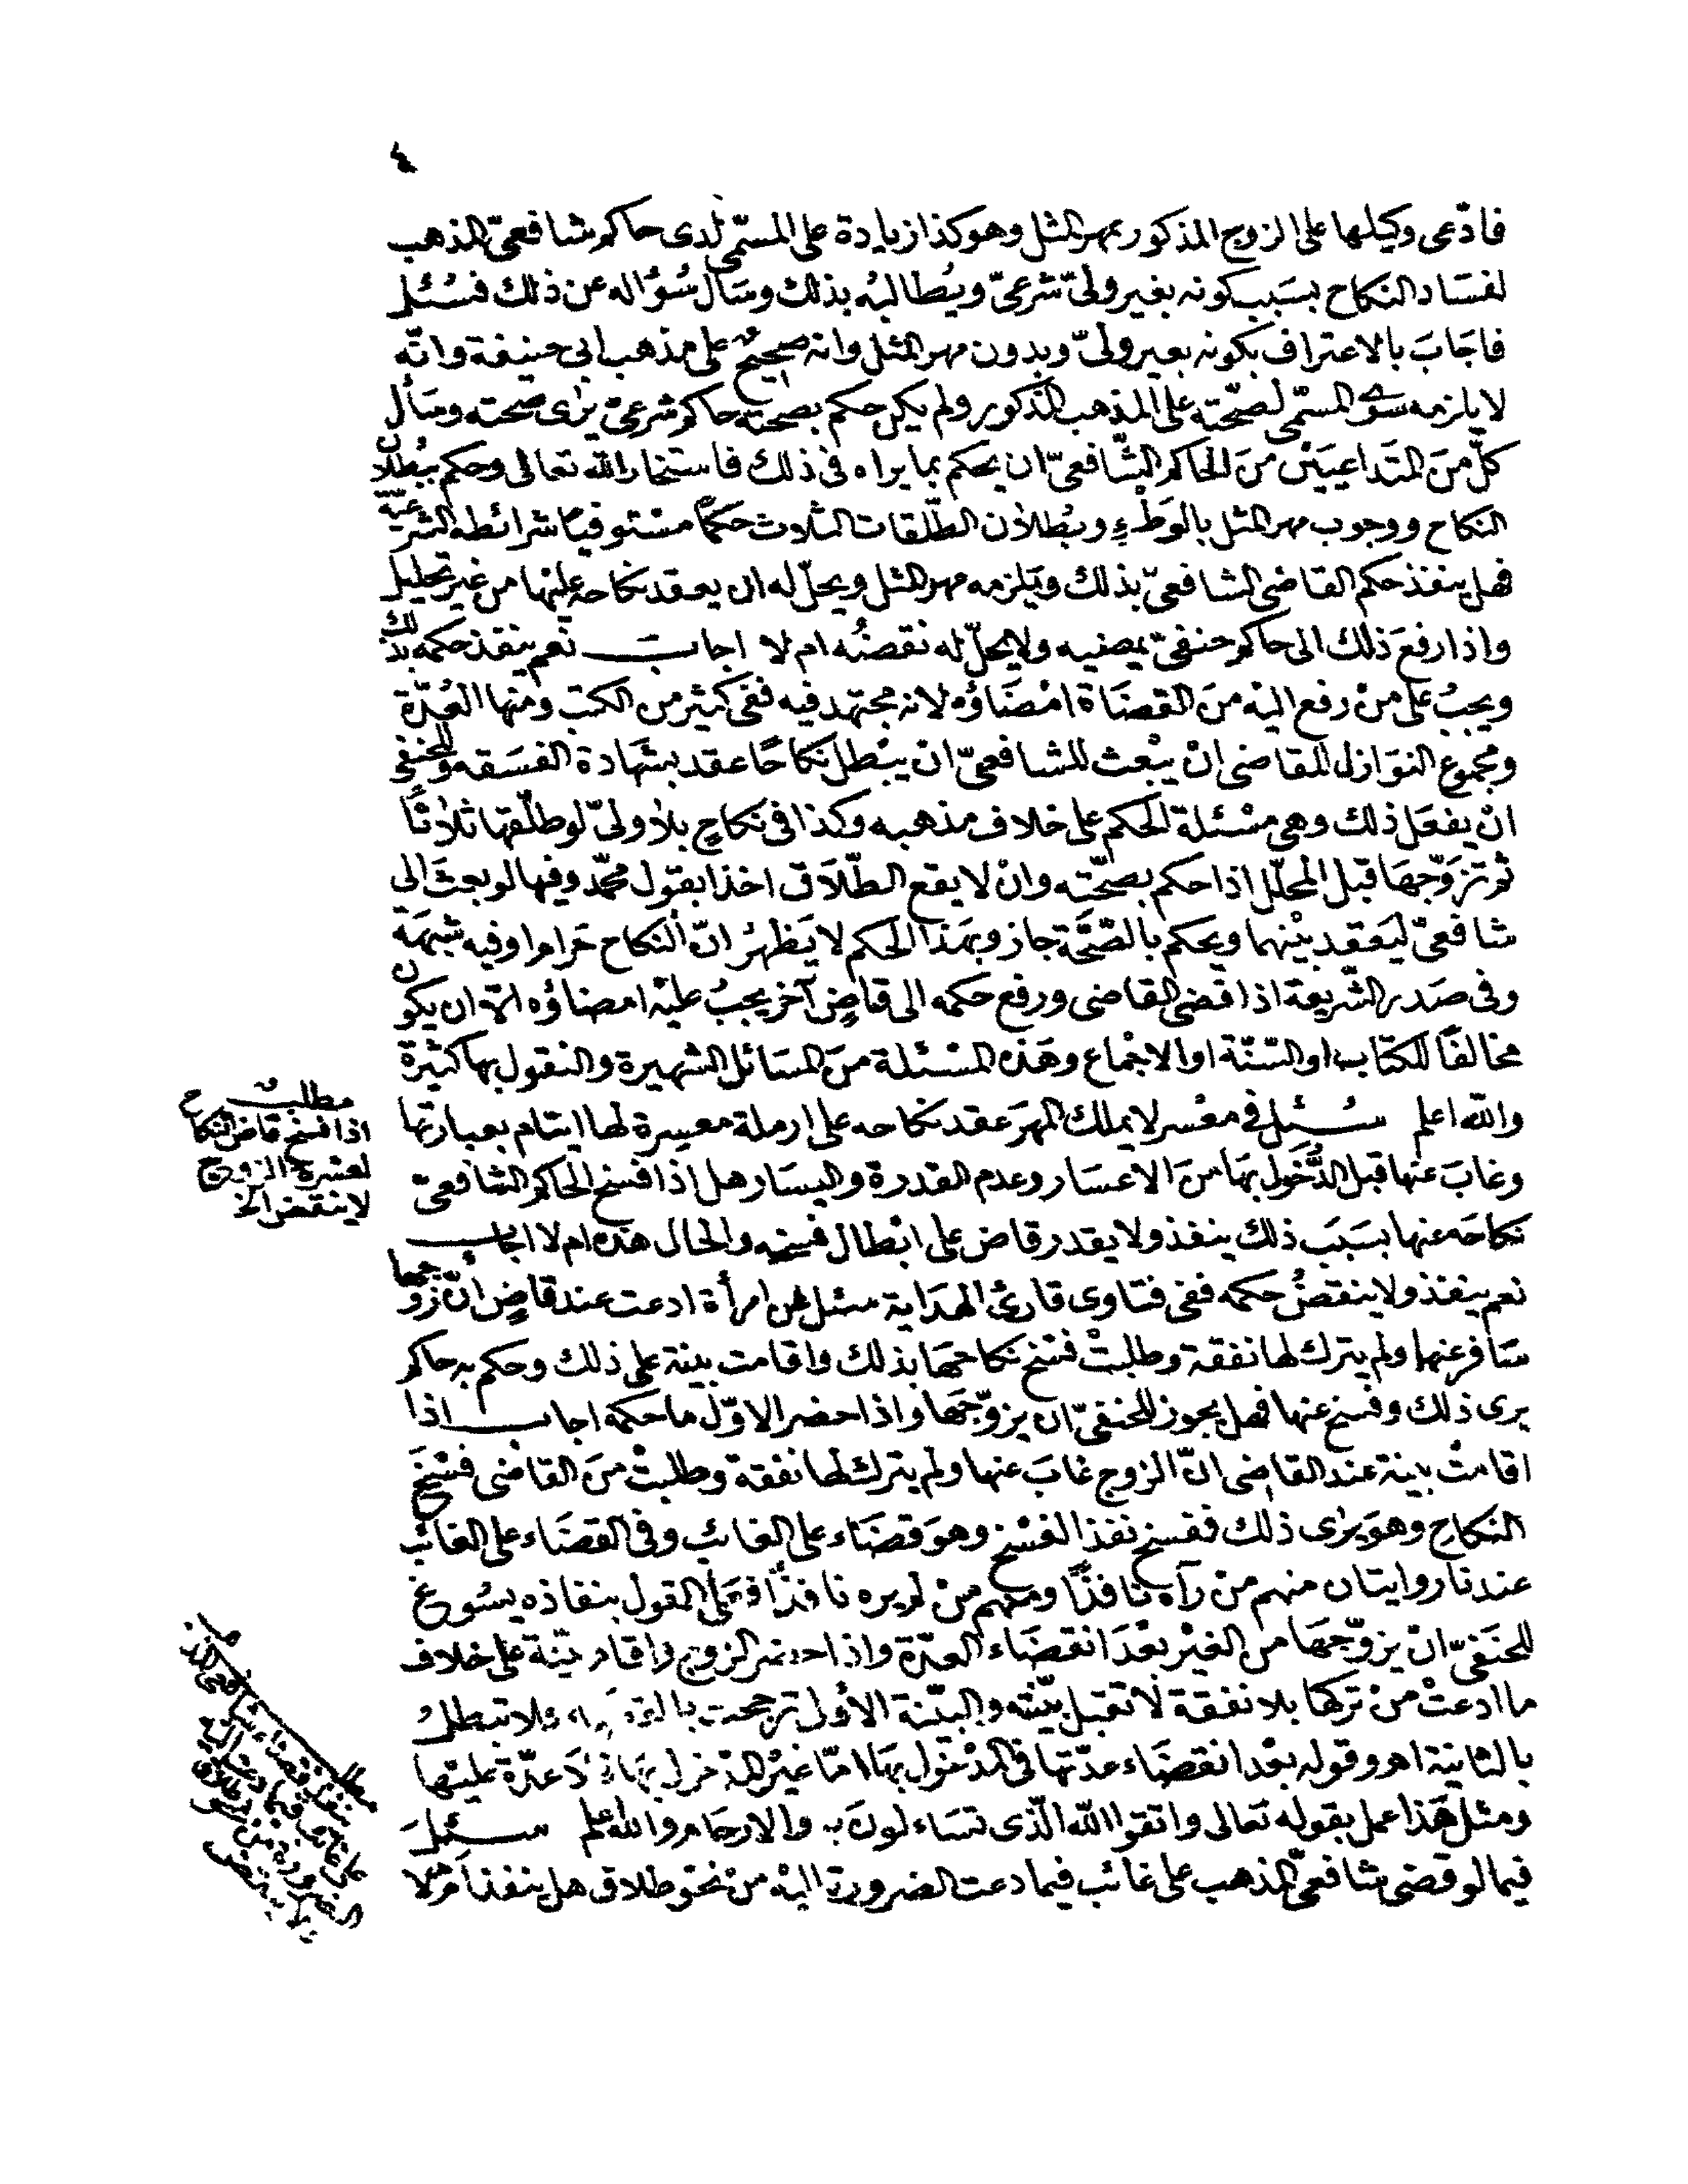 ٤
فادّعى وكيلها على الزوج المذكور بمهر المثل وهو كذا زيادة على المسمّى لدى حاكم شافعىّ المذهب
لفسَاد النكاح بسَبب كونه بغير ولىّ شرعىّ ويُطالبُه بذلك وسَأل سُؤاله عن ذلك فسُئل
فاجَابَ بالاعتراف بكونه بغير ولىّ وبدون مهر المثل وانه صحيحٌ على مذهب ابى حنيفة وانّه
لا يلزمه سوى المسمّى لصحّته على المذهب المذكور ولم يكن حكم بصحته حاكم شرعىّ يرَى صحته وسَأل
كلّ منَ المتَداعيَيْن منَ الحاكم الشّافعىّ ان يحكم بما يراه فى ذلك فاستخار الله تعالى وحكم ببُطلان
النكاح ووجوب مهر المثل بالوَطْءِ وببُطلان الطّلقات الثلاث حكمًا مسْتوفيًا شرائطه الشرعيّة
فهل ينفذ حكم القاضى الشافعىّ بذلك ويَلزمه مهر المثل ويحلّ له ان يعقد نكاحه عليْها من غير تحليل
واذا رفعَ ذلك الى حاكم حنفىّ يمضيه ولا يحلّ له نقضُه ام لا اجابَ نعم ينفذ حكمه بذلك
ويجبُ على منْ رفع اليْه منَ القضَاة امْضَاؤه لانه مجتهد فيه ففى كثير من الكتب ومنها العُدّة
ومجموع النوَازل للقاضى انْ يبْعث للشافعىّ انْ يبْطل نكاحًا عقد بشَهَادة الفسَقه وللحنفى
انْ يفعَل ذلك وهى مسْئلة الحكم على خلاف مذهبه وكذا فى نكاحٍ بلا ولىّ لو طلّقها ثلاثًا
ثم تزَوّجهَا قبل المحلّل اذا حكم بصحّته وانْ لا يقع الطّلاَق اخذا بقول محمّد وفيها لو بعثَ الى
شافعىّ ليَعقد بيْنهما ويحكم بالصّحَّة جاز وبهَذا الحكم لا يَظهرُ انّ النكاح حَرام او فيه شبهَة
وفى صَدر الشّريعة اذا قضى القاضى ورفع حكمه الى قاضٍ آخر يجبُ عليْه امضاؤه الاّ ان يكون
مخالفًا للكتاب او السّنّة او الاجماع وهَذه المسْئلة منَ المسَائل الشهيرة والنقول بها كثيْرة
والله اعلم سُئل فى معْسر لا يملك المهرَ عقد نكاحه على ارملة معسرة لها ايتام بعبارتها
وغابَ عنها قبل الدُّخَول بهَا منَ الاعسَار وعدم القدرة واليسَار هل اذا فسخ الحاكم الشافعىّ
نكاحَه عنها بسَبَب ذلك ينفذ ولا يقدر قاض على ابْطال فسخه والحال هذه ام لا اجاب
نعم ينفذ ولا ينقضُ حكمه ففى فتاوى قارئ الهدَاية سئل عن امرأة ادعت عند قاضٍ انّ زوجها
سَافر عنها ولم يترك لها نفقة وطلبتْ فسْخ نكاحهَا بذلك واقامت بينة على ذلك وحكم به حاكم
يرى ذلك وفسخ عنها فهل يجوز للحنفىّ ان يزوّجهَا واذا حضر الاوّل ما حكمه اجاب اذا
اقامتْ بينة عند القاضى انّ الزوج غابَ عنها ولم يترك لها نفقة وطلبتْ منَ القاضى فسْخَ
النكاح وهوَ يرى ذلك ففسخ نفذ الفسْخ وهوَ قضَاء على الغائب وفى القضَاء على الغائب
عندنا روايتان منهم منْ رآه نافذًا ومنهم منْ لم يره نافذًا فعَلى القول بنفاذه يسُوغ
للحنَفىّ انْ يزوّجهَا من الغيْر بعْدَ انقضَاء العدّة واذا حضر الزوج واقام بيّنة على خلاف
ما ادعتْ منْ تركها بلا نفقة لا تقبل بيّنته والبيّنة الأولى ترجحت بالقضاء فلا تبطل
بالثانية اهـ وقوله بعْد انقضَاء عدّتها فى المدْخول بهَا امّا غيْر المدْخول بهَا فلاَ عدّة عليْها
ومثل هَذا عمل بقوله تَعالى واتقوا الله الّذى تسَاءلونَ به والارحَام والله اعلم سئلَ
فيما لو قضى شافعىّ المذهب على غائب فيما دعت الضرورة اليْه منْ نحْو طلاق هل ينفذ ام لا
مطلب
اذا فسخ قاض النكاح
لعسرة الزوج
لا ينقض الخ
مطلب
ينفذ قضاء شافعى المذهب
على غائب فيما دعت اليه
الضرورة من نحو طلاق
ولا ينقض